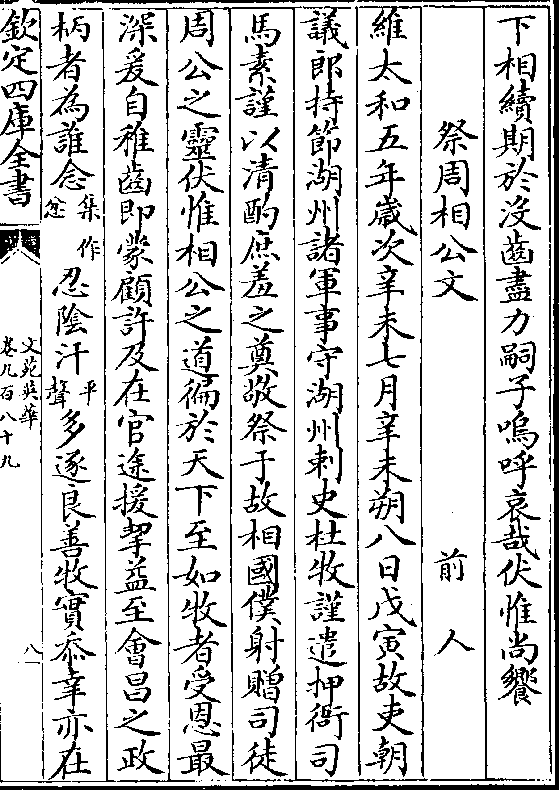 下相續期於沒齒盡力嗣子嗚呼哀哉伏惟尚饗
祭周相公文 前人
維太和五年歲次辛未七月辛未朔八日戊寅故吏朝
議郎持節湖州諸軍事守湖州刺史杜牧謹遣押衙司
馬素謹以清酌庶羞之奠敬祭于故相國僕射贈司徒
周公之靈伏惟相公之道徧於天下至如牧者受恩最
深爰自稚齒即蒙顧許及在官途援挈益至會昌之政
柄者為誰念集作忿忍陰汗平聲多逐良善牧實忝幸亦在
欽定四庫全書
文苑英華
卷九百八十九
八